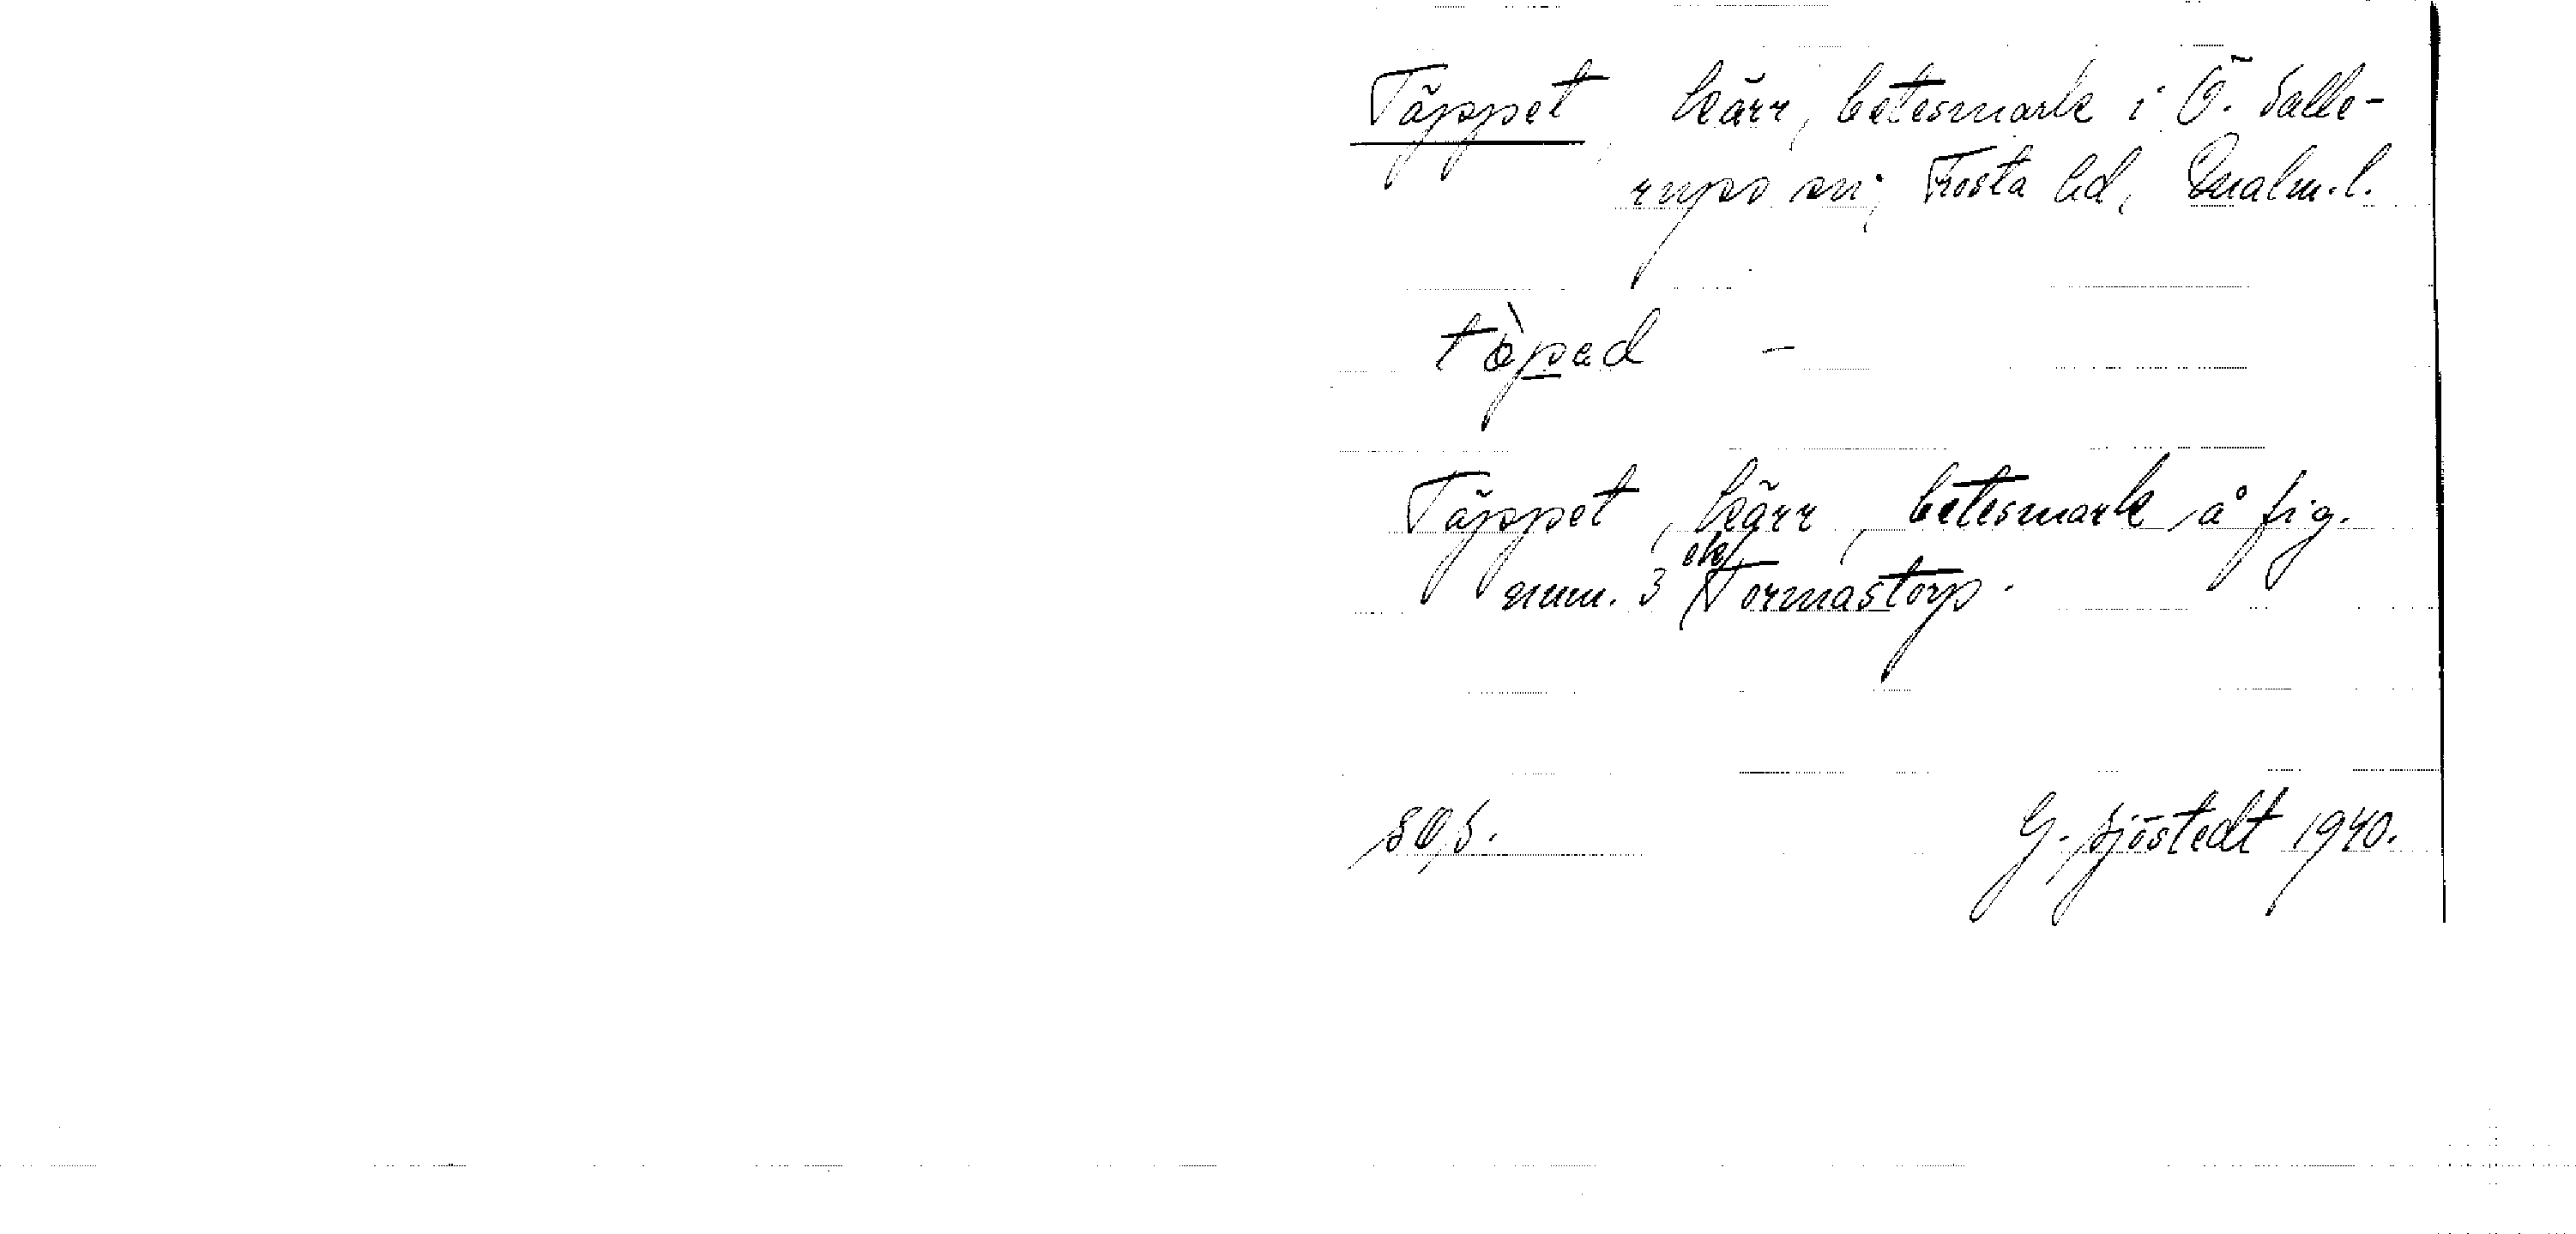 Täppet kärr, betesmark i Ö. Salle-
rups sn; Frosta hd, Malm. l.
tòpad –
Täppet, kärr, betesmark, å fig.
num. 3 ek Tormastorp.
G. Sjöstedt 1940.